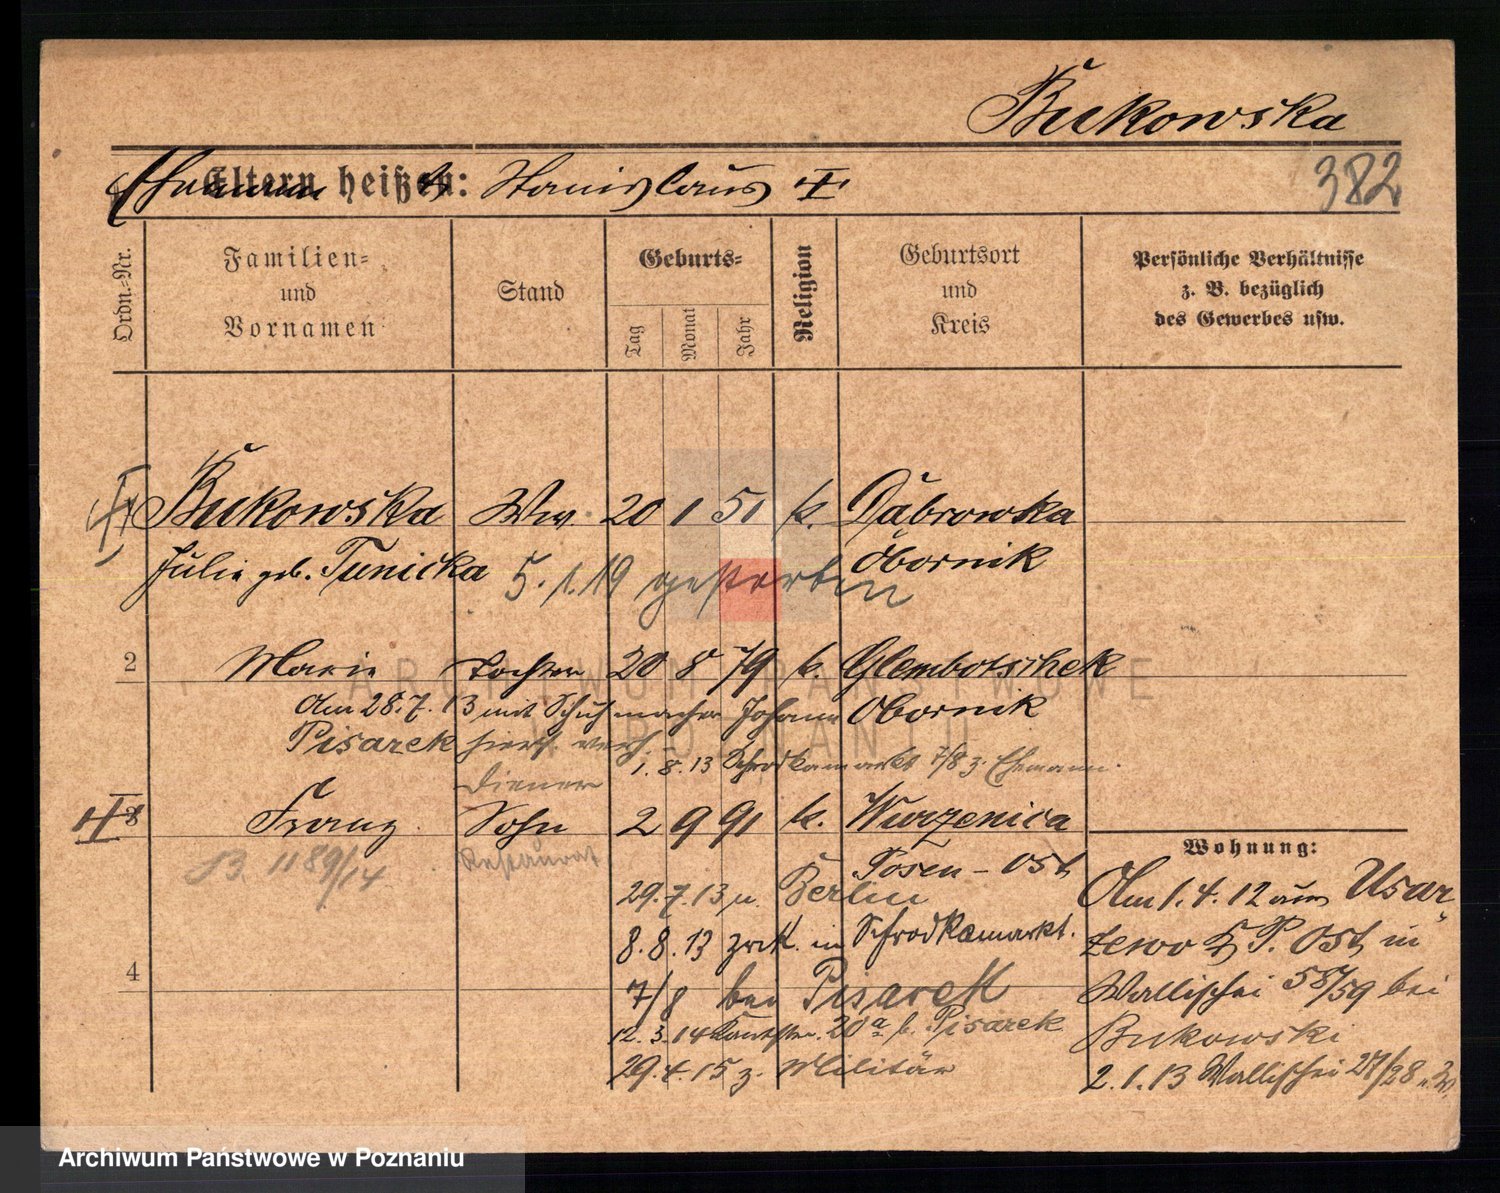 Bukowska
382
Eltern heißen: Stanislaus
Ordn.-Nr.
Familien-
und
Vornamen
Stand
Geburts-
Tag
Monat
Jahr
Religion
Geburtsort
und
Kreis
Persönliche Verhältnisse
z. B. bezüglich
des Gewerbes usw.
Bukowska Ww 20 1 51 k. Dąbrowka
Julie geb. Tunicka Obornik
5. 1. 19 gestorben
2 Marie Tochter 20 8 79 k. Glembotschek
Am 28.7.13 mit Schuhmacher Johann Obornik
Pisarek hiers. verh.
1.8.13 Schrodkamarkt 7/8 z. Ehemann.
Diener
3 Franz Sohn 2 9 91 k. Wurzenica
Posen-Ost
B. 1189/14
Restaurat
29.7.13 n. Berlin
8.8.13 zrk. in Schrodkamarkt.
7/8 bei Pisarek
12.3.14 20a b. Pisarek
29.4.15 z. Militär
4
Wohnung:
Am 1.4.12 aus Usar-
zewo P. Ost in
Wallischei 58/59 bei
Bukowski
2.1.13 Wallischei 27/28
ARCHIWUM PAŃSTWOWE
W POZNANIU
Archiwum Państwowe w Poznaniu